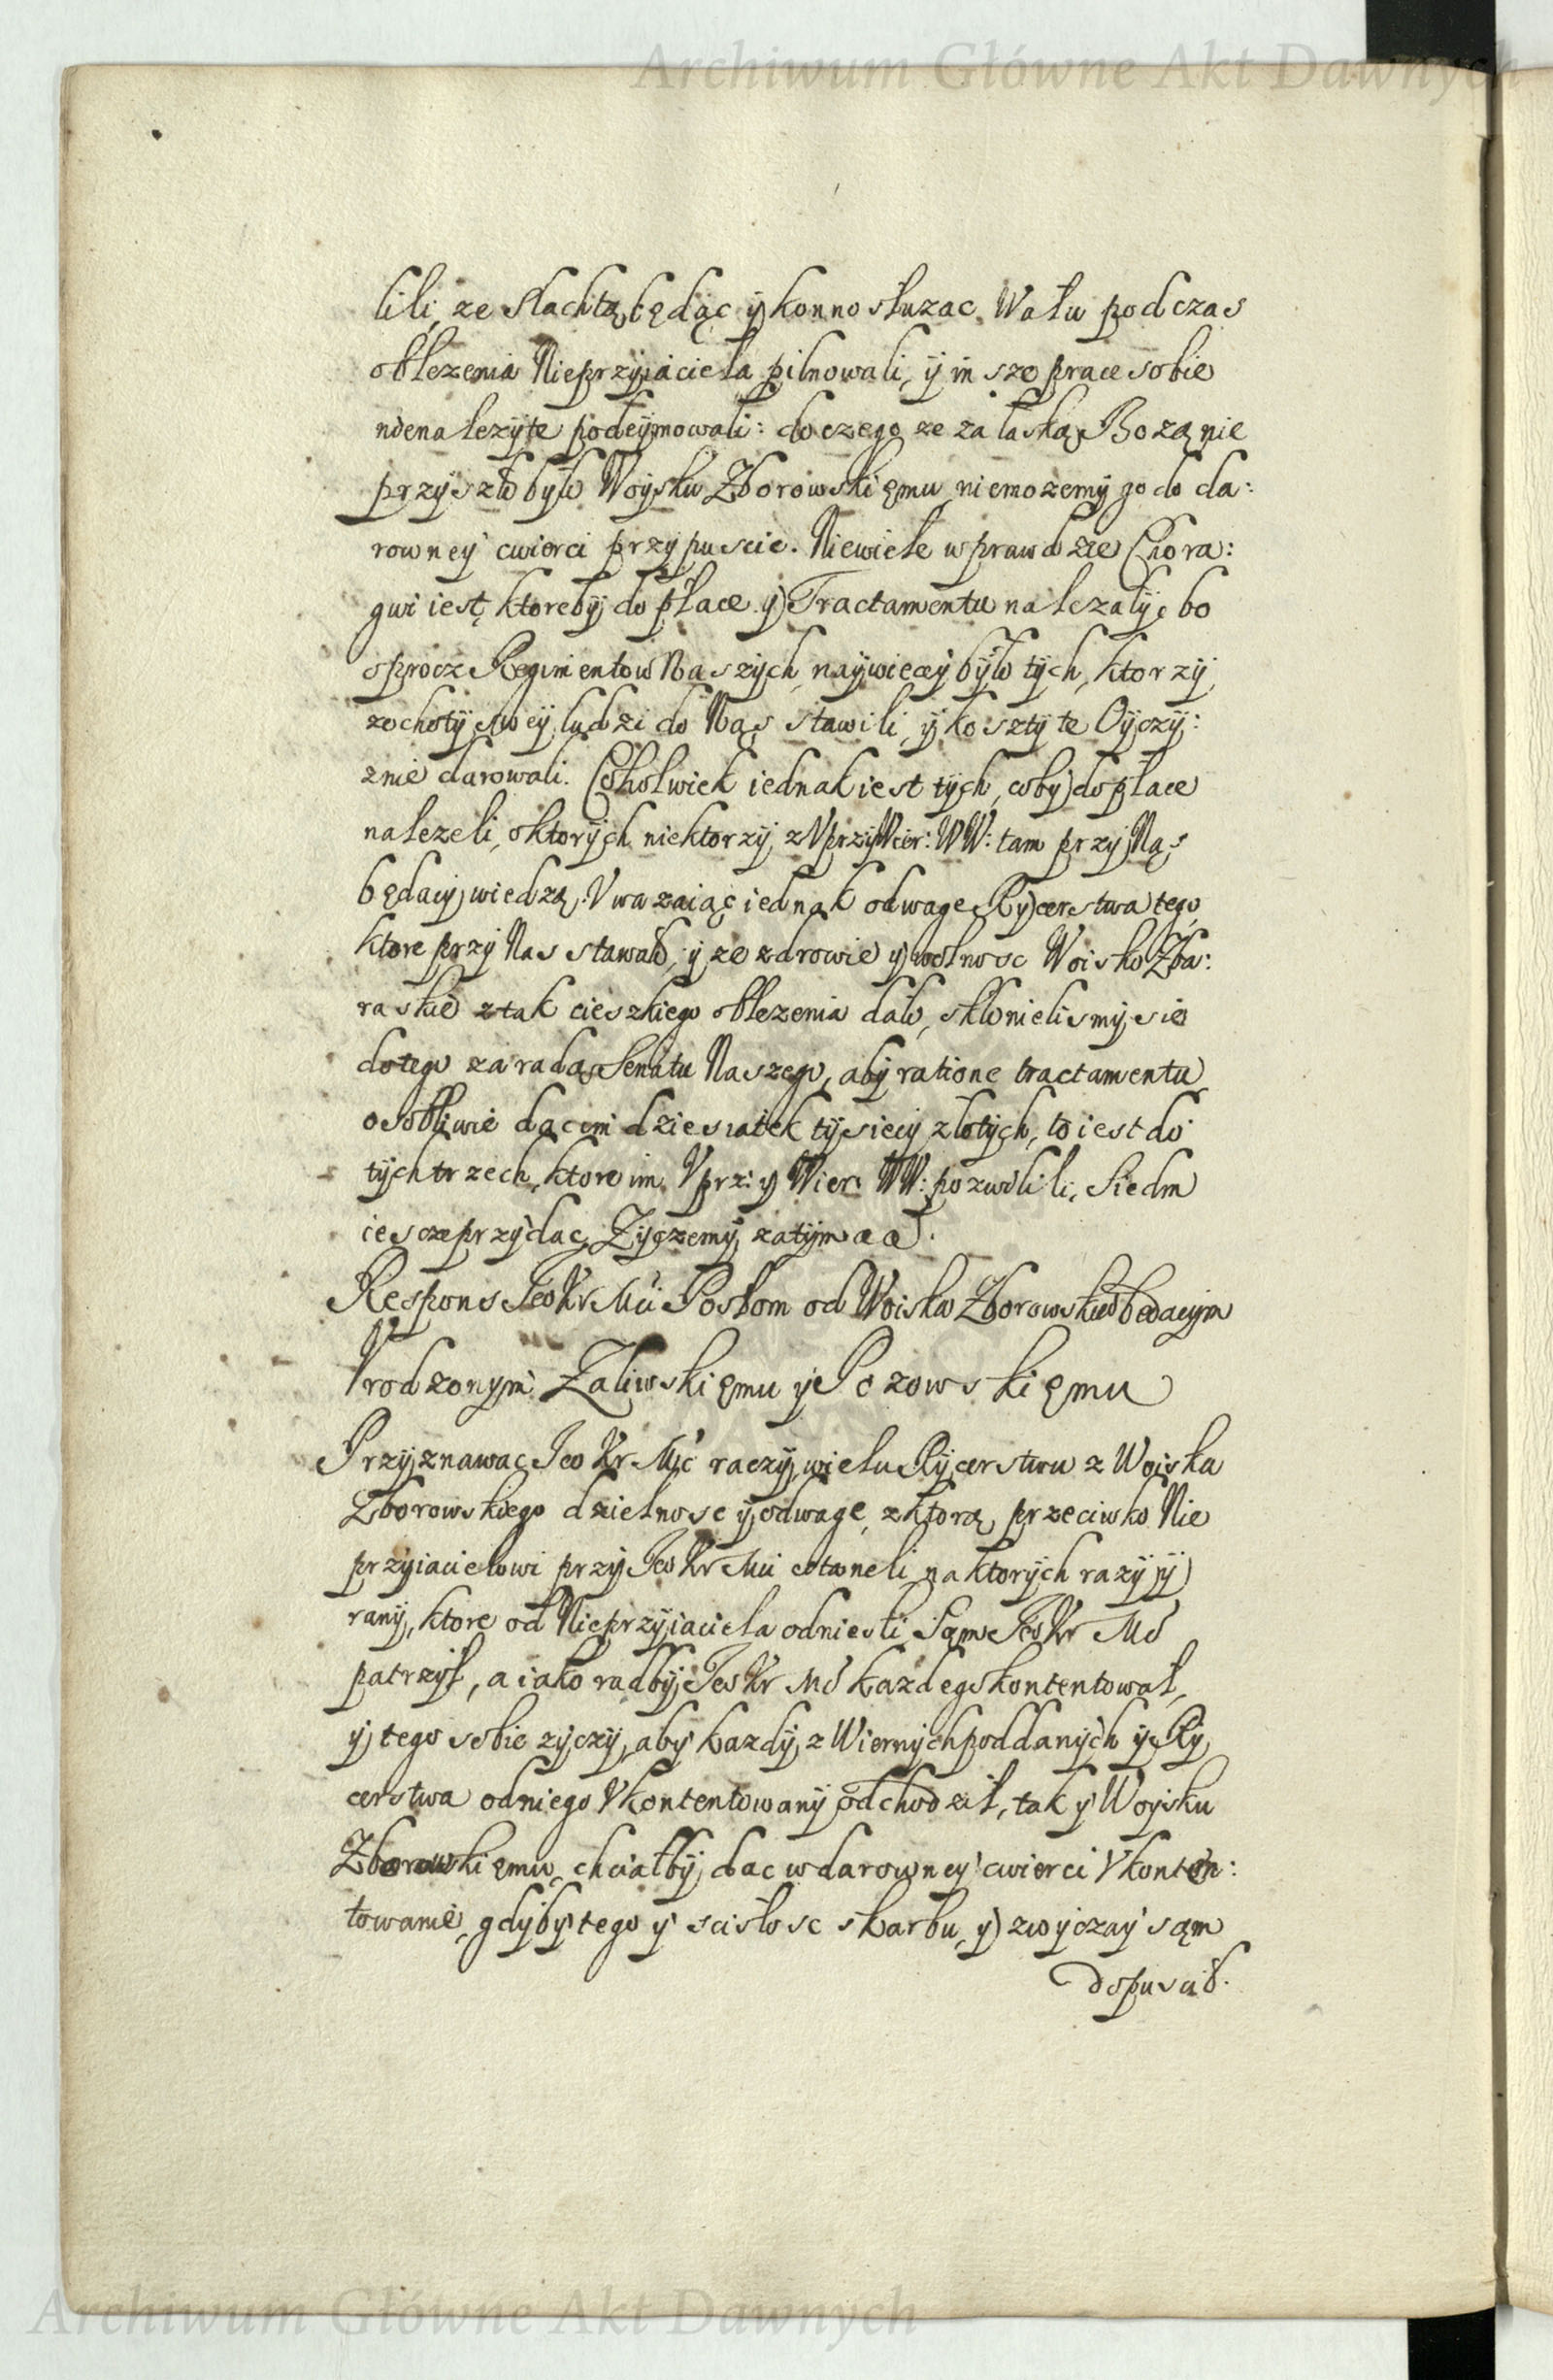 Archiwum Główne Akt Dawnych
lili, ze Slachtą będąc y konno słuzac. Wału podczas
oblezenia Nieprzyiaciela pilnowali, y insze prace sobie
nienalezyte podeymowali: do czego ze za łaską Bozą nie
przyszło było Woysku Zborowskięmu, niemozemy go do da:
rowney cwierci przypuscic. Niewiele wprawdzie Chorą:
gwi iest, ktoreby do płace y Tractamentu nalezały, bo
oprocz Regimentow Naszych, naywiecey było tych, ktorzy
zochoty swey ludzi do Nas stawili, y koszty te Oyczy:
znie darowali. Cokolwiek iednak iest tych, coby do płace
nalezeli, oktorych niektorzy z Vprzy Wier: WW: tam przy Nas
będący wiedzą. Vwazaiąc iednak odwage Rycerstwa tego
ktore przy Nas stawało, y ze zdrowie y wolnosc Woisko Zba:
raskie ztak cieszkiego oblezenia dało, skłonielismy sie
dotego za radą Senatu Naszego, aby ratione tractamentu
osobliwie dac im dziesiatek tysiecy złotych, to iest do
tych trzech, ktore im Vprz: y Wier: WW: pozwolili, Siedm
iescze przydac. Zyczemy zatym &c &c.
Respons Jeo Kr Mći Posłom od Woiska Zborowskieo będacym
Vrodzonym Zaliwskięmu y Pczowskięmu
Przyznawac Jeo Kr Mść raczy wielu Rycerstwu z Woiska
Zborowskiego dzielnosc y odwagę, zktorą przeciwko Nie
przyiacielowi przy Jeo Kr Mći staneli, na ktorych razy y
rany, ktore od Nieprzyiaciela odniesli Sąm Jeo Kr Mć
patrzył, a iako radby Jeo Kr Mć kazdego kontentował,
y tego sobie zyczy, aby kazdy z Wiernych poddanych y Ry
cerstwa odniego Vkontentowany odchodził, tak y Woysku
Zborowskięmu chciałby dac wdarowney cwierci Vkonten:
towanie, gdyby tego y scisłosc skarbu, y zwyczay sąm
dopuscił.
Archiwum Główne Akt Dawnych